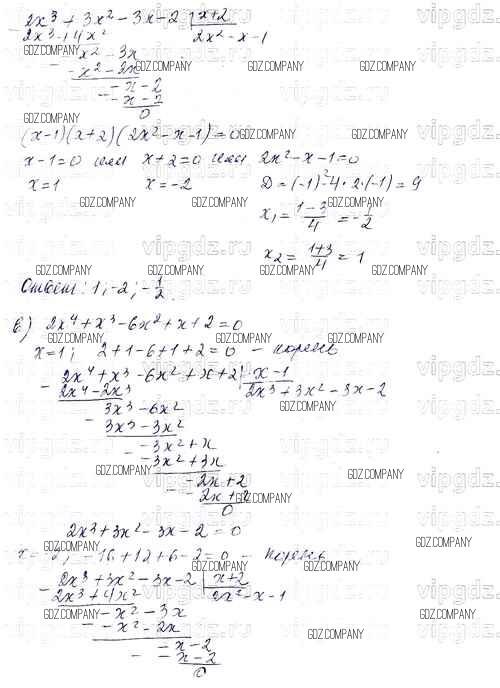 2x³ + 3x² - 3x - 2 | x+2
2x³ + 4x² | 2x² - x - 1
- x² - 3x
- x² - 2x
- x - 2
- x - 2
0
(x-1)(x+2)(2x²-x-1)=0
x-1=0 или x+2=0 или 2x²-x-1=0
x=1 x=-2 D=(-1)²-4·2·(-1)=9
x₁= (1-3)/4 = -1/2
x₂= (1+3)/4 = 1
Ответ: 1; -2; -1/2.
в) 2x⁴+x³-6x²+x+2=0
x=1; 2+1-6+1+2=0 - корень
2x⁴+x³-6x²+x+2 | x-1
2x⁴-2x³ | 2x³+3x²-3x-2
3x³-6x²
3x³-3x²
-3x²+x
-3x²+3x
-2x+2
-2x+2
0
2x³+3x²-3x-2=0
x=-2; -16+12+6-2=0 - корень
2x³+3x²-3x-2 | x+2
2x³+4x² | 2x²-x-1
-x²-3x
-x²-2x
-x-2
-x-2
0
vipgdz.ru
GDZ.COMPANY